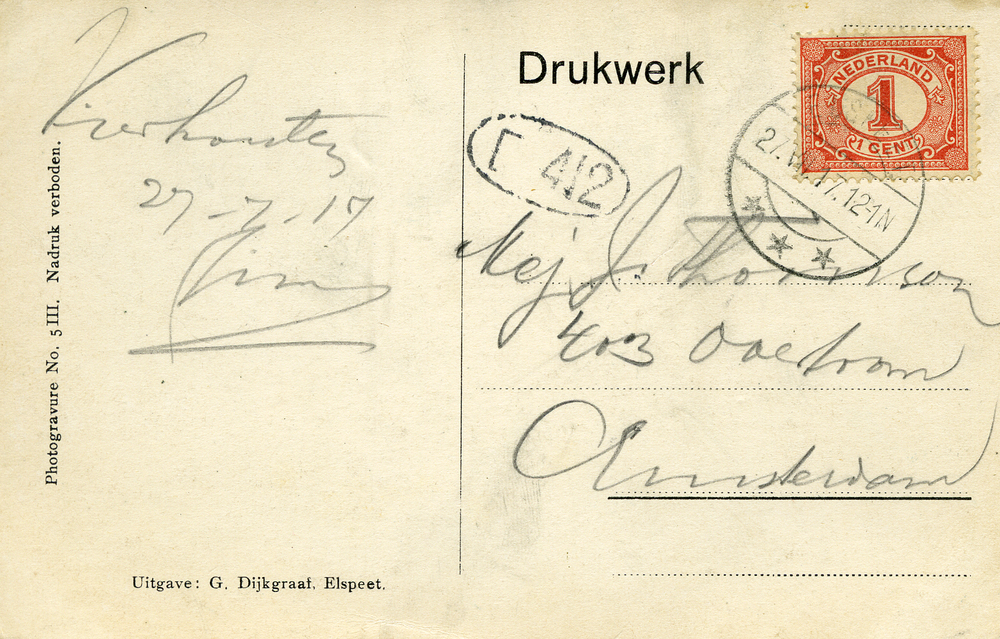 Vierhouten
27-7-17
Jim
Photogravure No. 5 III. Nadruk verboden.
Uitgave: G. Dijkgraaf, Elspeet.
Drukwerk
NEDERLAND
1
1 CENT
27.VII.17.12-1N
412
Mej J. Thomson
403 Overtoom
Amsterdam